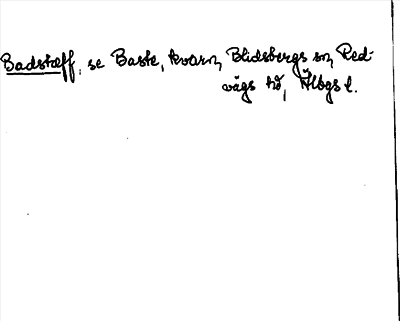 Badstæff, se Baste, kvarn, Blidsbergs sn, Red-
vägs hd, Älbgs l.